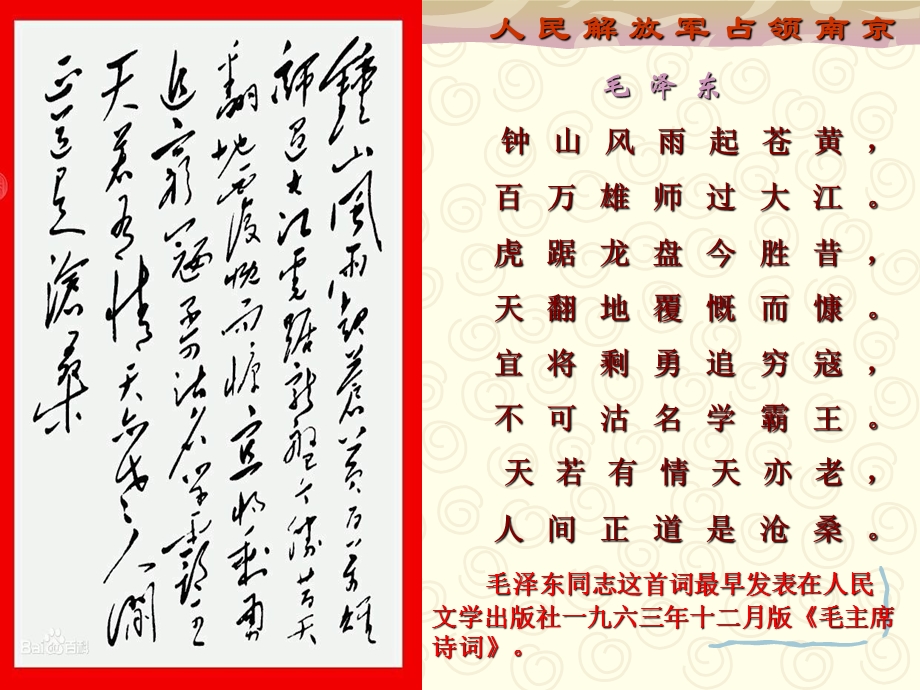 鍾山風雨起蒼黄百万雄
師過大江虎踞龍盤今勝昔天
翻地覆慨而慷宜將剩勇
追窮寇不可沽名學霸王
天若有情天亦老人間
正道是滄桑
Bai百科
人民解放军占领南京
毛泽东
钟山风雨起苍黄，
百万雄师过大江。
虎踞龙盘今胜昔，
天翻地覆慨而慷。
宜将剩勇追穷寇，
不可沽名学霸王。
天若有情天亦老，
人间正道是沧桑。
毛泽东同志这首词最早发表在人民
文学出版社一九六三年十二月版《毛主席
诗词》。